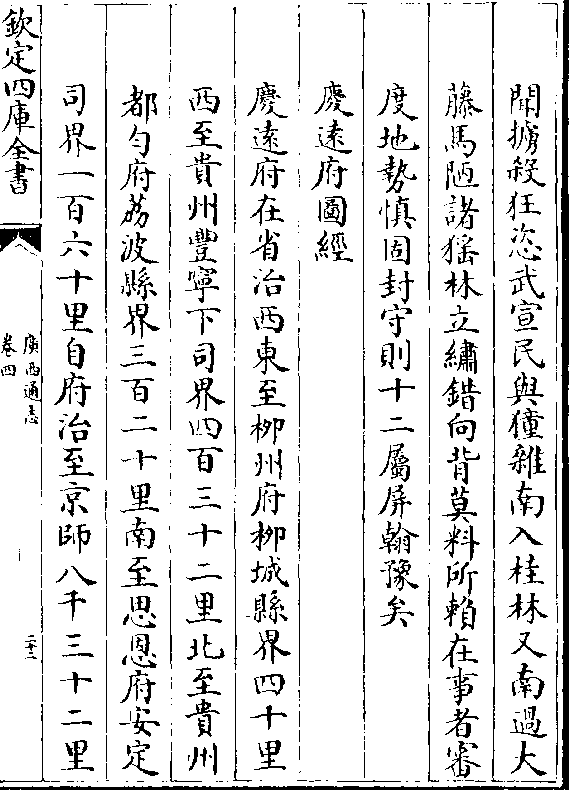 聞擄殺狂恣武宣民與獞雜南入桂林又南過大
藤馬陋諸猺林立繡錯向背莫料所賴在事者審
度地勢慎固封守則十二屬屏翰豫矣
慶遠府圖經
慶遠府在省治西東至柳州府柳城縣界四十里
西至貴州豐寧下司界四百三十二里北至貴州
都勻府荔波縣界三百二十里南至思恩府安定
司界一百六十里自府治至京師八千三十二里
欽定四庫全書
廣西通志
卷四
二十二